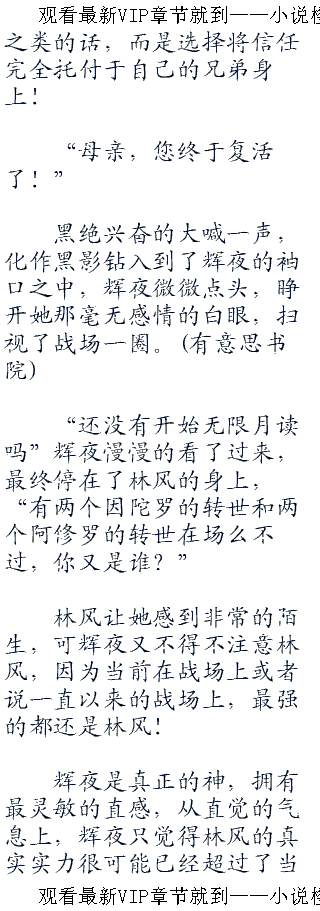 观看最新VIP章节就到——小说楼
之类的话，而是选择将信任
完全托付于自己的兄弟身
上！
“母亲，您终于复活
了！”
黑绝兴奋的大喊一声，
化作黑影钻入到了辉夜的袖
口之中，辉夜微微点头，睁
开她那毫无感情的白眼，扫
视了战场一圈。(有意思书
院)
“还没有开始无限月读
吗”辉夜慢慢的看了过来，
最终停在了林风的身上，
“有两个因陀罗的转世和两
个阿修罗的转世在场么不
过，你又是谁？”
林风让她感到非常的陌
生，可辉夜又不得不注意林
风，因为当前在战场上或者
说一直以来的战场上，最强
的都还是林风！
辉夜是真正的神，拥有
最灵敏的直感，从直觉的气
息上，辉夜只觉得林风的真
实实力很可能已经超过了当
观看最新VIP章节就到——小说楼